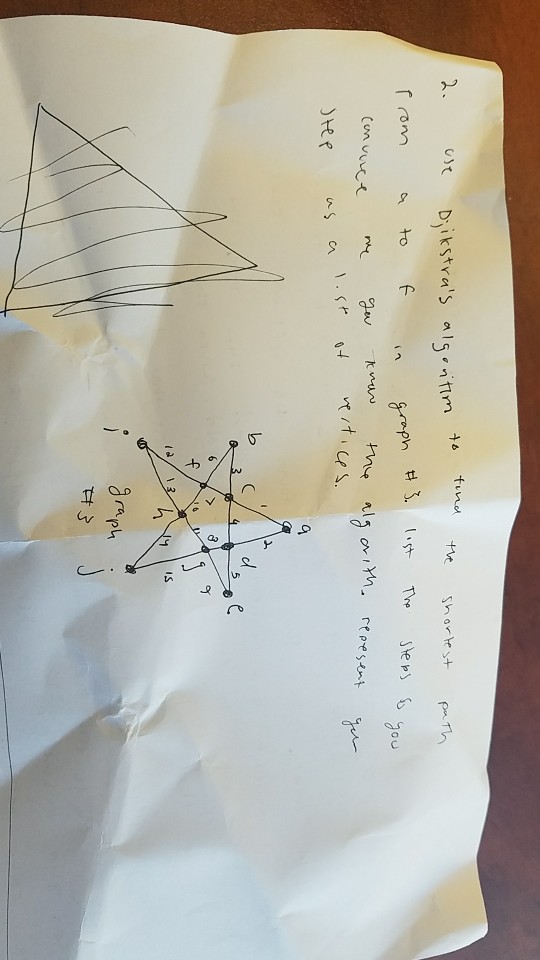 2. use Djikstra's algorithm to find the shortest path
from a to f in graph #3. list the steps so you
convince me you know the algorithm. represent your
step as a list of vertices.
a
1 2
b 3 c 4 d 5 e
6 7 8 9
f g
10 11
12 h
13 14 15
i j
graph
#3